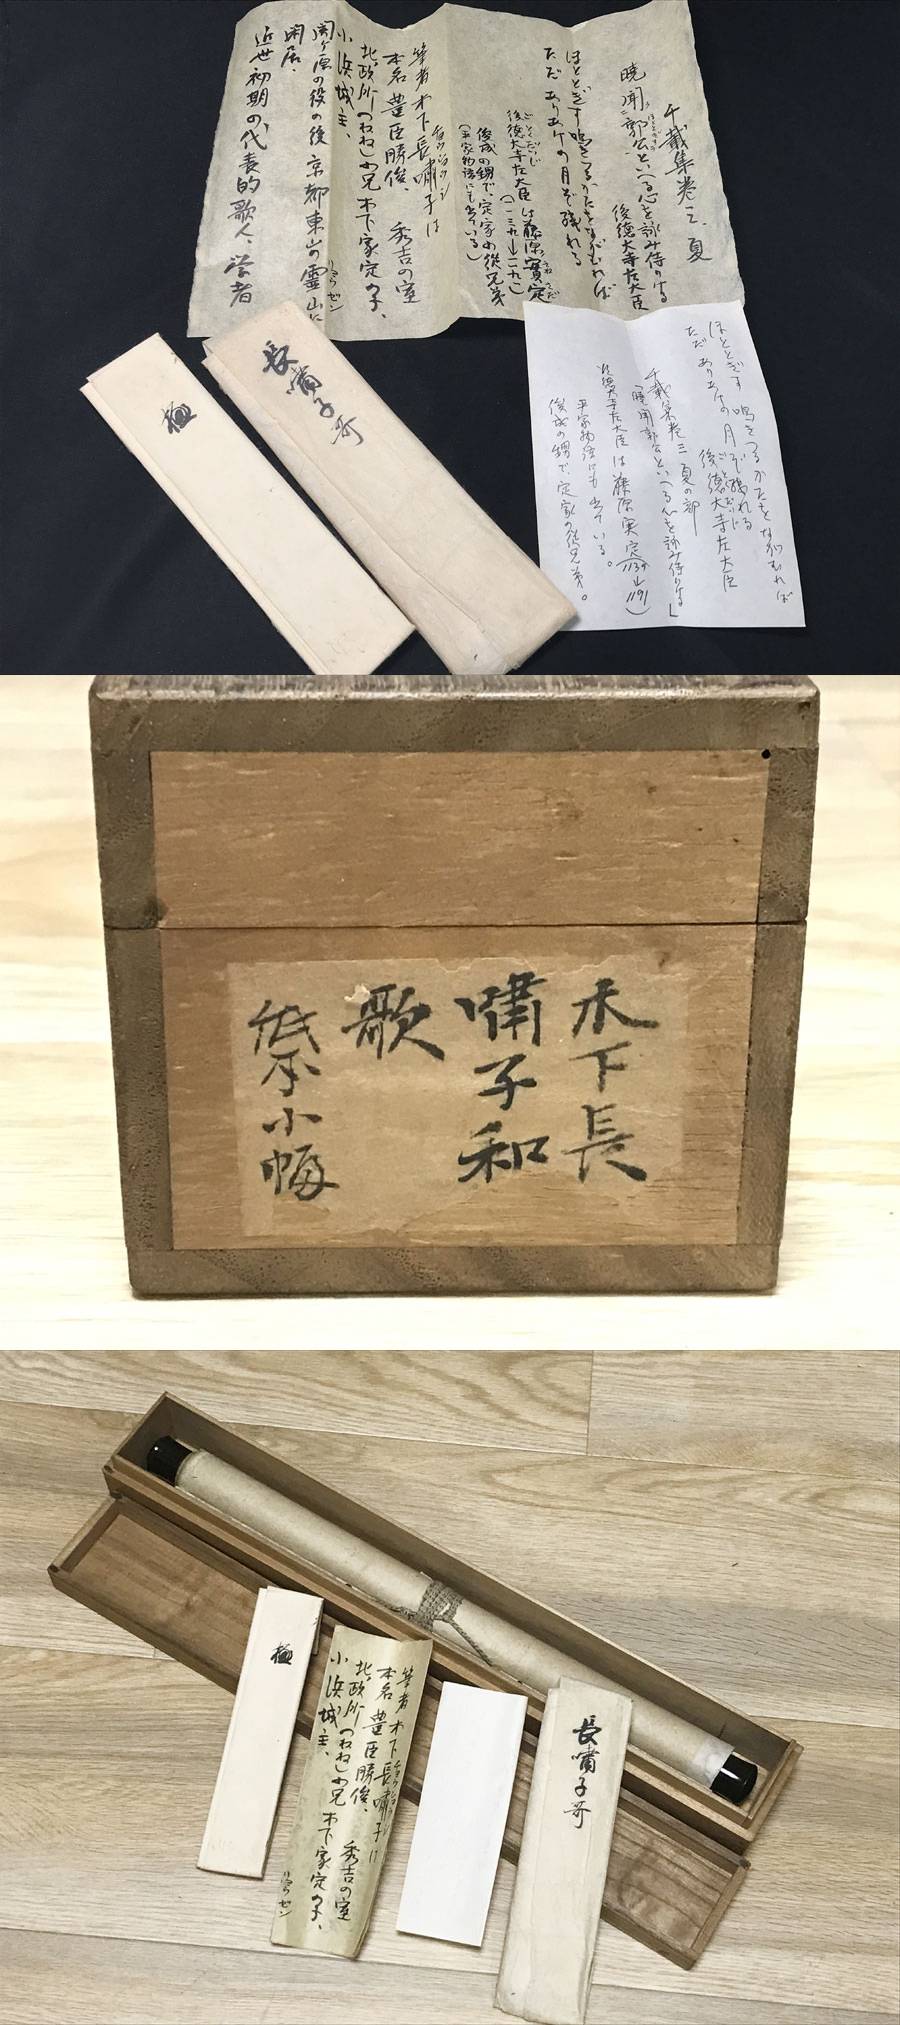 千載集巻三、夏
暁聞郭公といへる心を詠み侍りける
ほととぎす
後徳大寺左大臣
ほとゝぎす鳴きつるかたをながむれば
ただありあけの月ぞ残れる
ごとくだいじ
後徳大寺左大臣は藤原實定
さねさだ
(一一三九→一一九一)
俊成の甥で、定家の従兄弟
(平家物語にも出ている)
筆者木下長嘯子は
チョウショウシ
本名豊臣勝俊 秀吉の室
北政所(ねね)の兄木下家定の子、
小浜城主、
関ヶ原の役の後京都東山の霊山に
リョウゼン
閑居、
近世初期の代表的歌人、学者
極
長嘯子哥
ほととぎす鳴きつるかたをながむれば
ただありあけの月ぞ残れる
ごとくだいじ
後徳大寺左大臣
千載集巻三夏の部
「暁聞郭公といへる心を詠み侍りける」
後徳大寺左大臣は藤原実定(1139→1191)
平家物語にも出ている。
俊成の甥で、定家の従兄弟。
木下長
嘯子和
歌
紙本小幅
極
筆者木下長嘯子は
チョウショウシ
本名豊臣勝俊、秀吉の室
北政所(ねね)の兄木下家定の子、
小浜城主、
リョウゼン
長嘯子哥